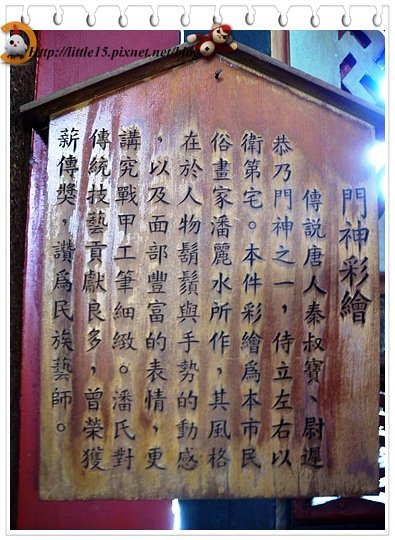 Http://little15.pixnet.net/blog
門神彩繪
傳説唐人秦叔寶、尉遲
恭乃門神之一，侍立左右以
衛第宅。本件彩繪爲本市民
俗畫家潘麗水所作，其風格
在於人物鬍鬚與手勢的動感
，以及面部豐富的表情，更
講究戰甲工筆細緻。潘氏對
傳統技藝貢獻良多，曾榮獲
薪傳獎，讚爲民族藝師。